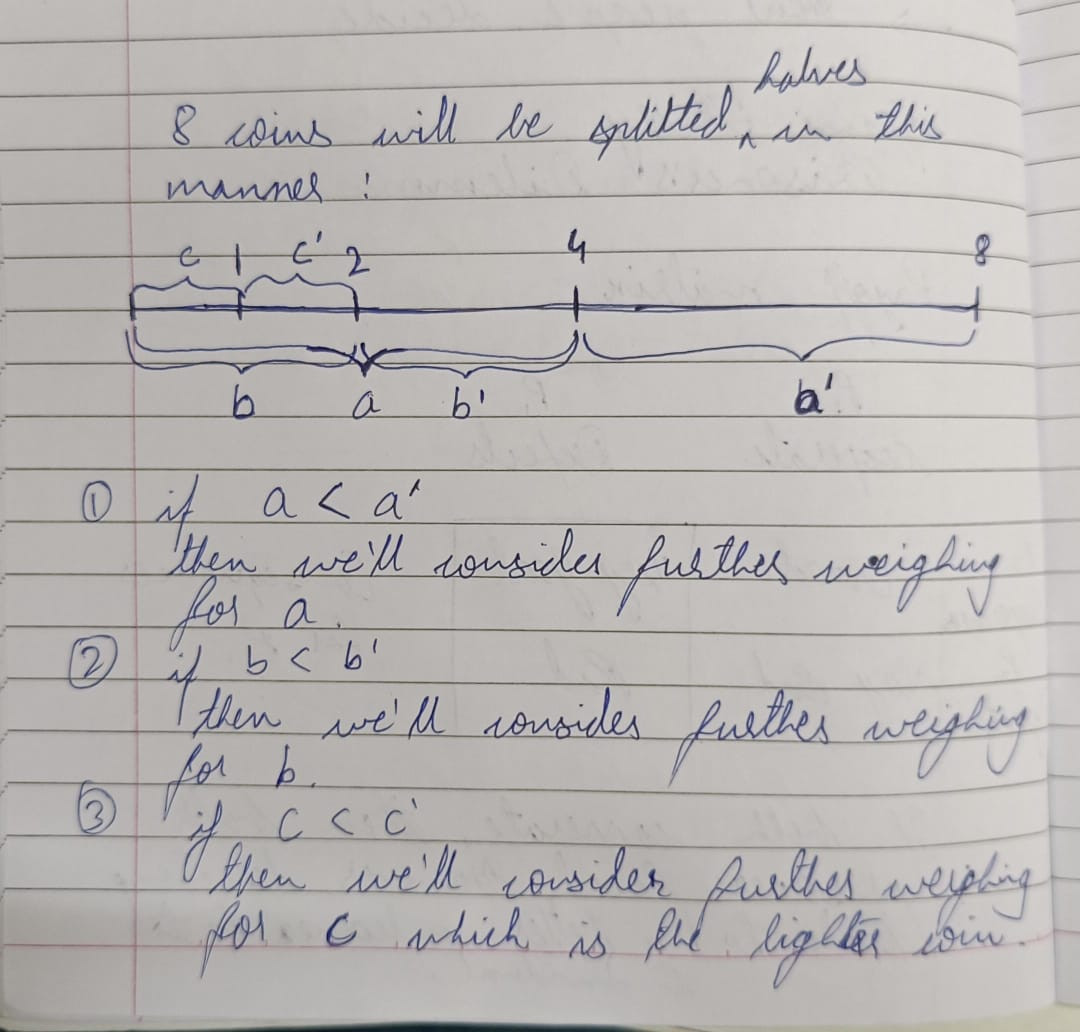 halves
8 coins will be splitted ^ in this
manner :
c 1 c' 2 4 8
b a b' a'
① if a < a'
then we'll consider further weighing
for a.
② if b < b'
then we'll consider further weighing
for b.
③ if c < c'
then we'll consider further weighing
for c which is the lighter coin.